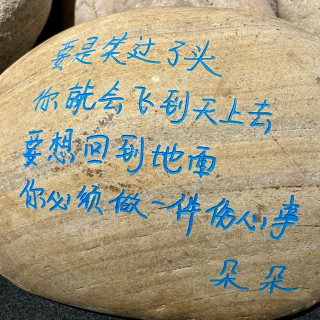 要是笑过了头
你就会飞到天上去
要想回到地面
你必须做一件伤心事
朵朵